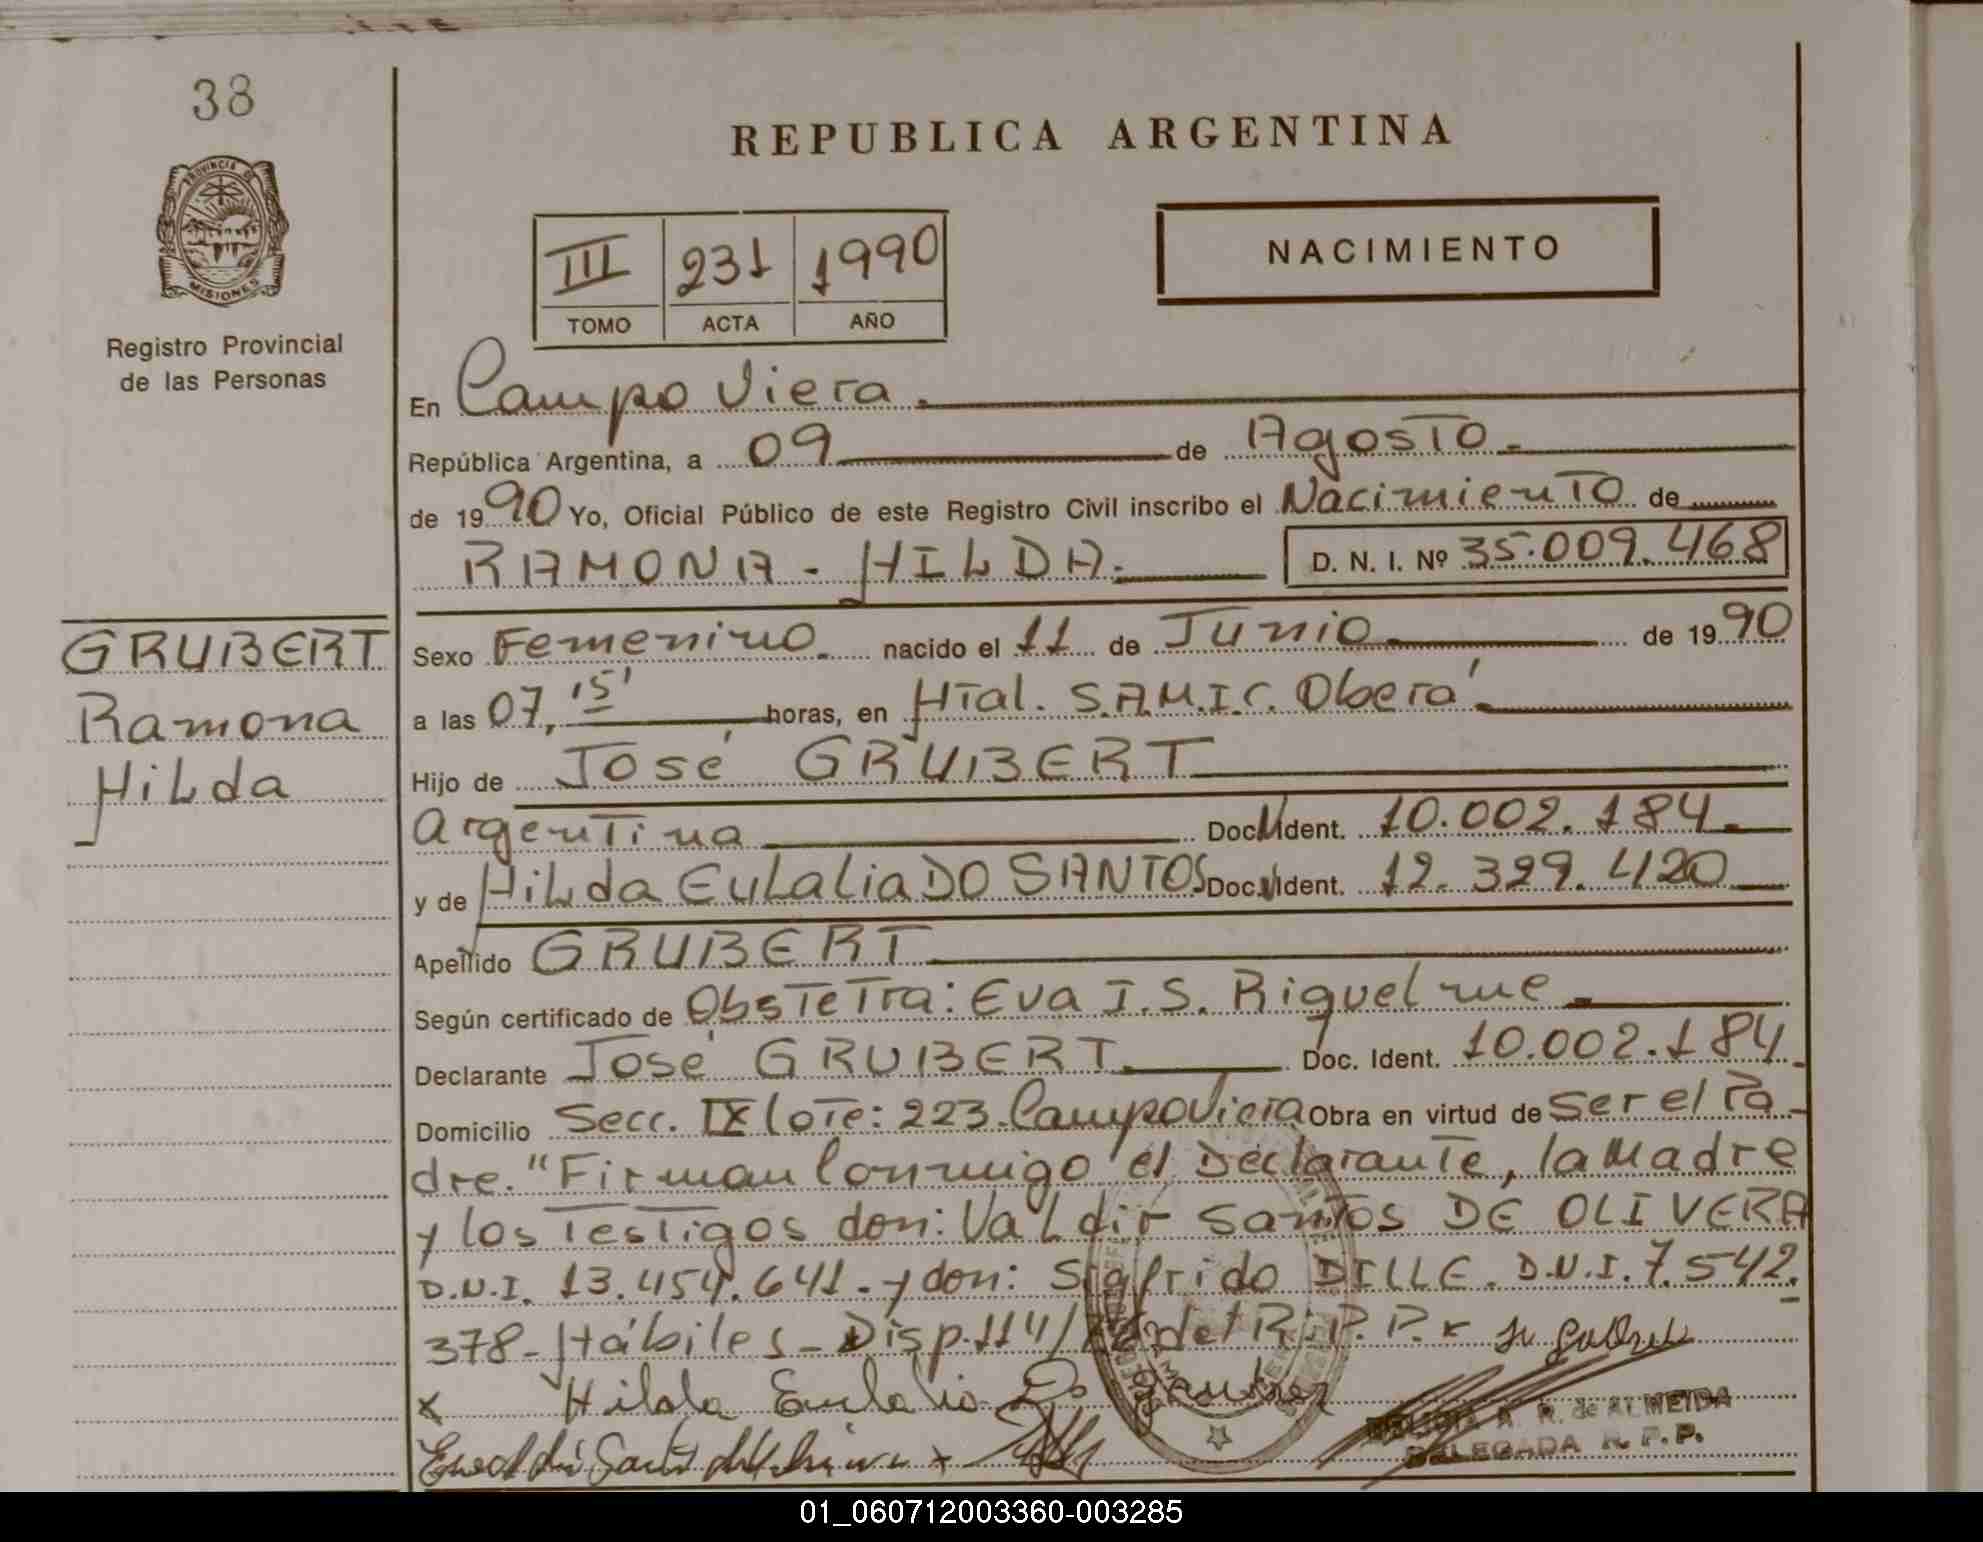 38
PROVINCIA DE
MISIONES
Registro Provincial
de las Personas
REPUBLICA ARGENTINA
III 231 1990
TOMO ACTA AÑO
NACIMIENTO
En Campo Viera.
República Argentina, a 09 de Agosto.-
de 1990 Yo, Oficial Público de este Registro Civil inscribo el Nacimiento de
RAMONA - HILDA.- D. N. I. Nº 35.009.468
GRUBERT
Ramona
Hilda
Sexo Femenino. nacido el 11 de Junio de 1990
a las 07,15' horas, en Htal. S.A.M.I.C. Oberá
Hijo de José GRUBERT
Argentina Doc. Ident. 10.002.184.
y de Hilda Eulalia DO SANTOS Doc. Ident. 12.329.420
Apellido GRUBERT
Según certificado de Obstetra: Eva I.S. Riquelme
Declarante José GRUBERT. Doc. Ident. 10.002.184.
Domicilio Secc. IX lote: 223. Campo Viera Obra en virtud de ser el Pa-
dre. "Firman Conmigo el Declarante, la Madre
y los Testigos don: Valdir Santos DE OLIVERA
D.N.I. 13.454.641.- y don: Sigfrido DILLE. D.N.I. 7.542.
378- Hábiles - Disp. 114/ del R.P.P.
x Hilda Eulalia Do Santos
R. de ALMEIDA
DELEGADA R. P. P.
01_060712003360-003285